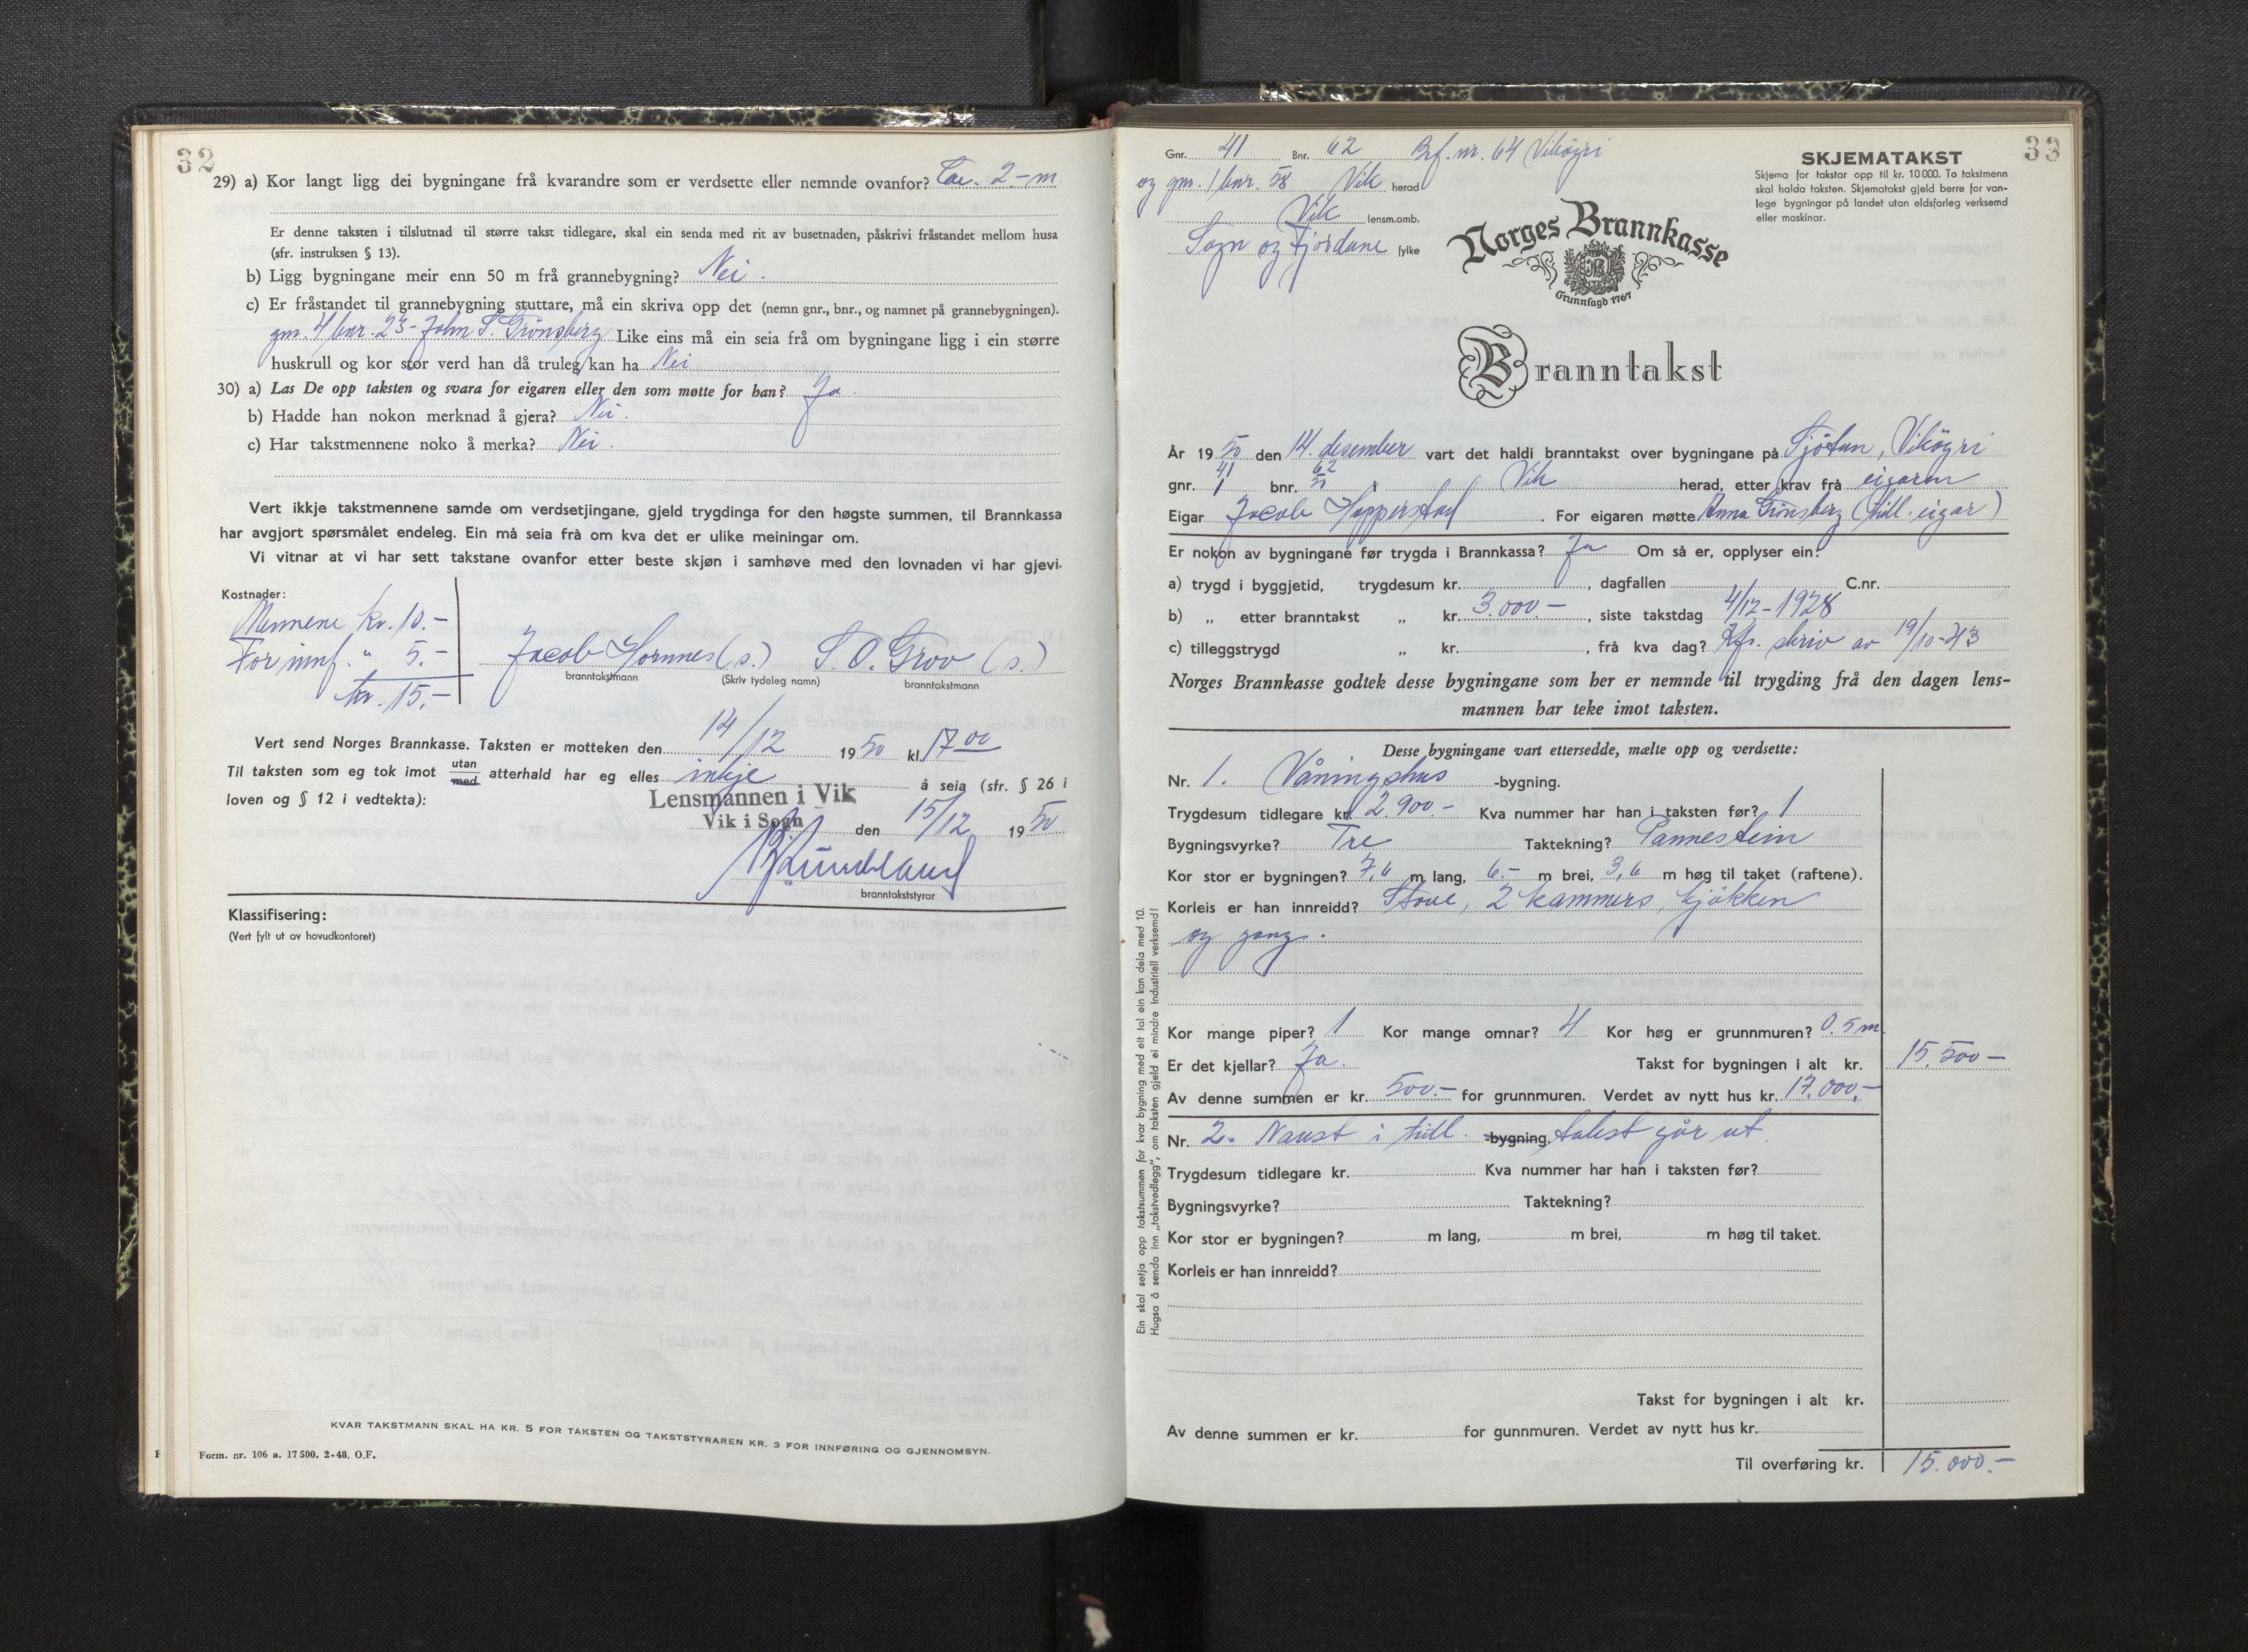 32
29) a) Kor langt ligg dei bygningane frå kvarandre som er verdsette eller nemnde ovanfor? Ca. 2.- m.
Er denne taksten i tilslutnad til større takst tidlegare, skal ein senda med rit av busetnaden, påskrivi fråstandet mellom husa
(sfr. instruksen § 13).
b) Ligg bygningane meir enn 50 m frå grannebygning? Nei.
c) Er fråstandet til grannebygning stuttare, må ein skriva opp det (nemn gnr., bnr., og namnet på grannebygningen).
gnr. 4 bnr. 23 - John S. Grönsberg Like eins må ein seia frå om bygningane ligg i ein større
huskrull og kor stor verd han då truleg kan ha Nei
30) a) Las De opp taksten og svara for eigaren eller den som møtte for han? Ja.
b) Hadde han nokon merknad å gjera? Nei.
c) Har takstmennene noko å merka? Nei.
Vert ikkje takstmennene samde om verdsetjingane, gjeld trygdinga for den høgste summen, til Brannkassa
har avgjort spørsmålet endeleg. Ein må seia frå om kva det er ulike meiningar om.
Vi vitnar at vi har sett takstane ovanfor etter beste skjøn i samhøve med den lovnaden vi har gjevi.
Kostnader:
Mennene kr. 10.-
For innf. " 5.-
kr. 15.-
Jacob Hornnes (s.) S. O. Grov (s.)
branntakstmann (Skriv tydeleg namn) branntakstmann
Vert send Norges Brannkasse. Taksten er motteken den 14/12 1950 kl. 17 00
Til taksten som eg tok imot utan/med atterhald har eg elles inkje å seia (sfr. § 26 i
loven og § 12 i vedtekta):
Lensmannen i Vik
Vik i Sogn den 15/12 1950
branntakststyrar
Klassifisering:
(Vert fylt ut av hovudkontoret)
KVAR TAKSTMANN SKAL HA KR. 5 FOR TAKSTEN OG TAKSTSTYRAREN KR. 3 FOR INNFØRING OG GJENNOMSYN.
Form. nr. 106 a. 17 500. 2-48. O.F.
33
Gnr. 41 Bnr. 62 Brf. nr. 64 Vikögri
og gnr. 1 bnr. 58 Vik herad
Vik lensm.omb.
Sogn og Fjordane fylke
SKJEMATAKST
Skjema for takstar opp til kr. 10 000. To takstmenn
skal halda taksten. Skjematakst gjeld berre for van-
lege bygningar på landet utan eldsfarleg verksemd
eller maskinar.
Norges Brannkasse
Grunnlagd 1767
Branntakst
År 1950 den 14. desember vart det haldi branntakst over bygningane på Sjötun, Vikögri
41 62
gnr. 1 bnr. 58 i Vik herad, etter krav frå eigaren
Eigar Jacob Hopperstad. For eigaren møtte Anna Grönsberg (tidl. eigar)
Er nokon av bygningane før trygda i Brannkassa? Ja Om så er, opplyser ein:
a) trygd i byggjetid, trygdesum kr. , dagfallen C.nr.
b) „ etter branntakst „ kr. 3.000 - , siste takstdag 4/12 - 1928
c) tilleggstrygd „ kr. , frå kva dag? Kfr. skriv av 19/10-43
Norges Brannkasse godtek desse bygningane som her er nemnde til trygding frå den dagen lens-
mannen har teke imot taksten.
Desse bygningane vart ettersedde, mælte opp og verdsette:
Nr. 1. Våningshus -bygning.
Trygdesum tidlegare kr. 2.900.- Kva nummer har han i taksten før? 1
Bygningsvyrke? Tre Taktekning? Pannestein
Kor stor er bygningen? 7,6 m lang, 6.- m brei, 3,6 m høg til taket (raftene).
Korleis er han innreidd? Stove, 2 kammers, kjökken
og gang.
Kor mange piper? 1 Kor mange omnar? 4 Kor høg er grunnmuren? 0.5 m.
Er det kjellar? Ja. Takst for bygningen i alt kr. 15.500 -
Av denne summen er kr. 500.- for grunnmuren. Verdet av nytt hus kr. 17.000.-
Nr. 2. Naust i tidl. -bygning. takst går ut.
Trygdesum tidlegare kr. Kva nummer har han i taksten før?
Bygningsvyrke? Taktekning?
Kor stor er bygningen? m lang, m brei, m høg til taket.
Korleis er han innreidd?
Takst for bygningen i alt kr.
Av denne summen er kr. for gunnmuren. Verdet av nytt hus kr.
Til overføring kr. 15.000.-
Ein skal setja opp takstsummen for kvar bygning med eit tal ein kan dela med 10.
Hugsa å senda inn „takstvedlegg”, om taksten gjeld ei mindre industriell verksemd!